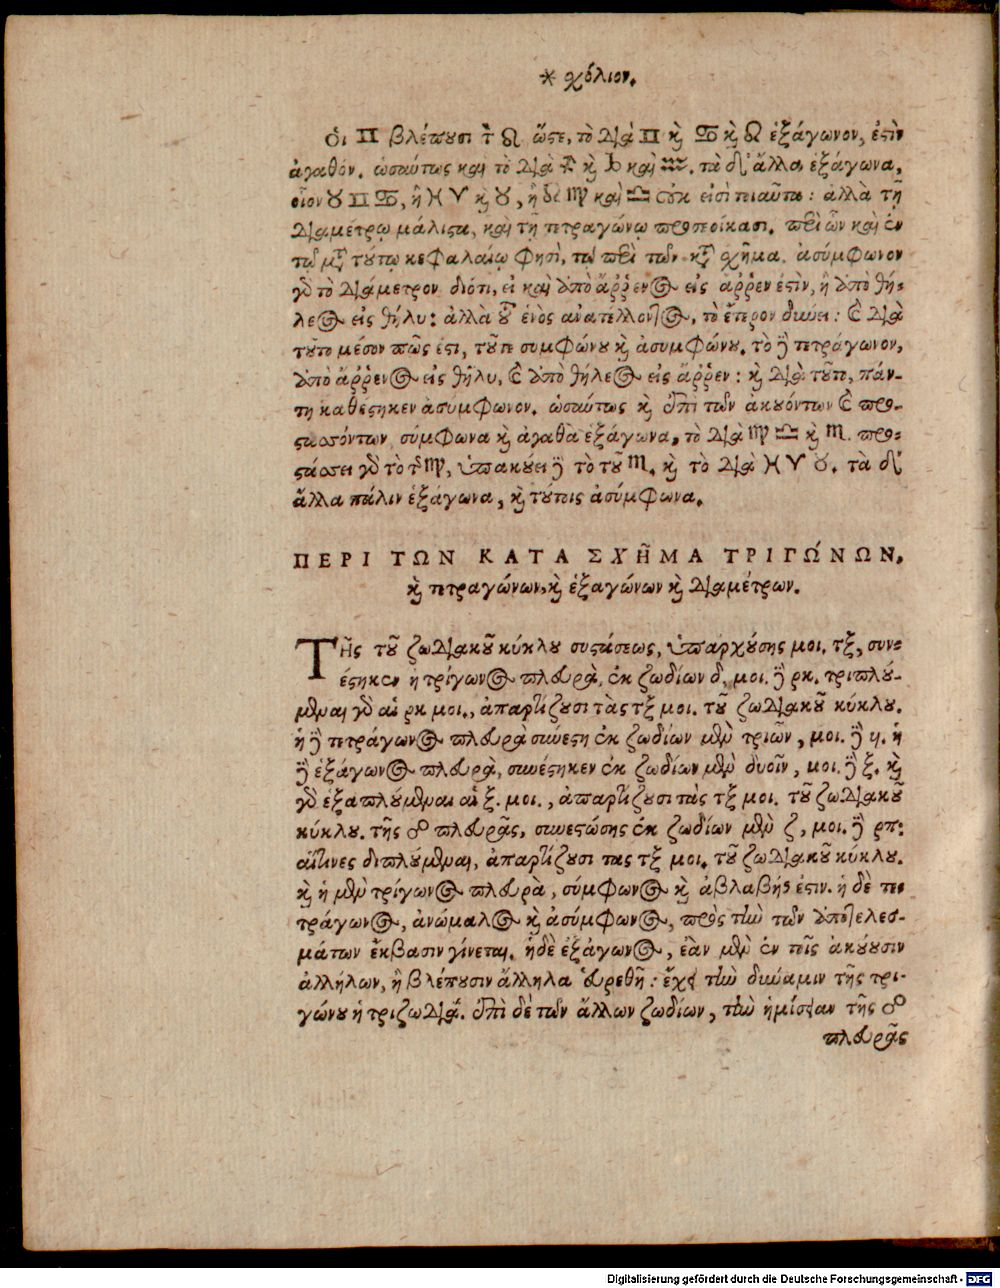 * χόλιον.
Οἱ ♊ βλέπουσι τ̀ ♌ ὥστε, τὸ διὰ ♊ κὶ ♋ κὶ ♌ ἑξάγωνον, ἐστὶν
ἀγαθόν. ὡσαύτως καὶ τὸ διὰ ♐ κὶ ♑ καὶ ♒. τὰ δ' ἄλλα ἑξάγωνα,
οἷον ♉ ♊ ♋, ἢ ♓ ♈ κὶ ♉, ἢ ♌ ♍ καὶ ♎ οὐκ εἰσὶ τοιαῦτα: ἀλλὰ τῇ
διαμέτρῳ μάλιστα, καὶ τῇ τετραγώνῳ προσεοίκασι. περὶ ὧν καὶ ἐν
τῷ μτ̀ τούτῳ κεφαλαίῳ φησὶ, τῷ περὶ τῶν κτ̀ σχῆμα. ἀσύμφωνον
γὸ τὸ διάμετρον διότι, εἰ καὶ ἀπὸ ἄῤῥενος εἰς ἄῤῥεν ἐστὶν, ἢ ἀπὸ θή-
λεος εἰς θῆλυ: ἀλλὰ τοῦ ἑνὸς ἀνατέλλοντος, τὸ ἕτερον δύνει: ἐ διὰ
τοῦτο μέσον πῶς ἐστι, τοῦτε συμφώνου κὶ ἀσυμφώνου. τὸ ἢ τετράγωνον,
ἀπὸ ἄῤῥενος εἰς θῆλυ, ἐ ἀπὸ θήλεος εἰς ἄῤῥεν: κὶ διὰ τοῦτο, πάν-
τη καθέστηκεν ἀσύμφωνον. ὡσαύτως κὶ ἐπὶ τῶν ἀκουόντων ἐ προ-
στασσόντων σύμφωνα κὶ ἀγαθὰ ἑξάγωνα, τὸ διὰ ♍ ♎ κὶ ♏. προσ-
τάσσει γὸ τὸ τ̂ ♍, ὑπακούει ἢ τὸ τοῦ ♏. κὶ τὸ διὰ ♓ ♈ ♉. τὰ δ'
ἄλλα πάλιν ἑξάγωνα, κὶ τούτοις ἀσύμφωνα.
ΠΕΡΙ ΤΩΝ ΚΑΤΑ ΣΧΗ͂ΜΑ ΤΡΙΓΏΝΩΝ,
κὶ τετραγώνων, κὶ ἑξαγώνων κὶ διαμέτρων.
ΤΗ͂ς τοῦ ζωδιακοῦ κύκλου συστάσεως, ὑπαρχούσης μοι. τξ, συν-
έστηκεν ἡ τρίγωνος πλευρὰ, ἐκ ζωδίων δ, μοι. ἢ ρκ. τριπλού-
μεναι γὸ αἱ ρκ μοι., ἀπαρτίζουσι τὰς τξ μοι. τοῦ ζωδιακοῦ κύκλου.
ἡ ἢ τετράγωνος πλευρὰ συνέστη ἐκ ζωδίων μὲν τριῶν, μοι. ἢ ϟ. ἡ
ἢ ἑξάγωνος πλευρὰ, συνέστηκεν ἐκ ζωδίων μὲν δυοῖν, μοι. ἢ ξ. κὶ
γὸ ἑξαπλούμεναι αἱ ξ. μοι., ἀπαρτίζουσι τὰς τξ μοι. τοῦ ζωδιακοῦ
κύκλου. τῆς ☍ πλευρᾶς, συνεστώσης ἐκ ζωδίων μὲν ζ, μοι. ἢ ρπ:
αἵτινες διπλούμεναι, ἀπαρτίζουσι τὰς τξ μοι. τοῦ ζωδιακοῦ κύκλου.
κὶ ἡ μὲν τρίγωνος πλευρὰ, σύμφωνος κὶ ἀβλαβής ἐστιν. ἡ δὲ τε-
τράγωνος, ἀνώμαλος κὶ ἀσύμφωνος, πρὸς τὴν τῶν ἀποτελεσ-
μάτων ἔκβασιν γίνεται. ἡ δὲ ἑξάγωνος, ἐὰν μὲν ἐν τοῖς ἀκούουσιν
ἀλλήλων, ἢ βλέπουσιν ἄλληλα εὑρεθῇ: ἔχει τὴν δύναμιν τῆς τρι-
γώνου ἢ τριζωδία. ἐπὶ δὲ τῶν ἄλλων ζωδίων, τὴν ἡμίσειαν τῆς ☍
πλευρᾶς
Digitalisierung gefördert durch die Deutsche Forschungsgemeinschaft - DFG